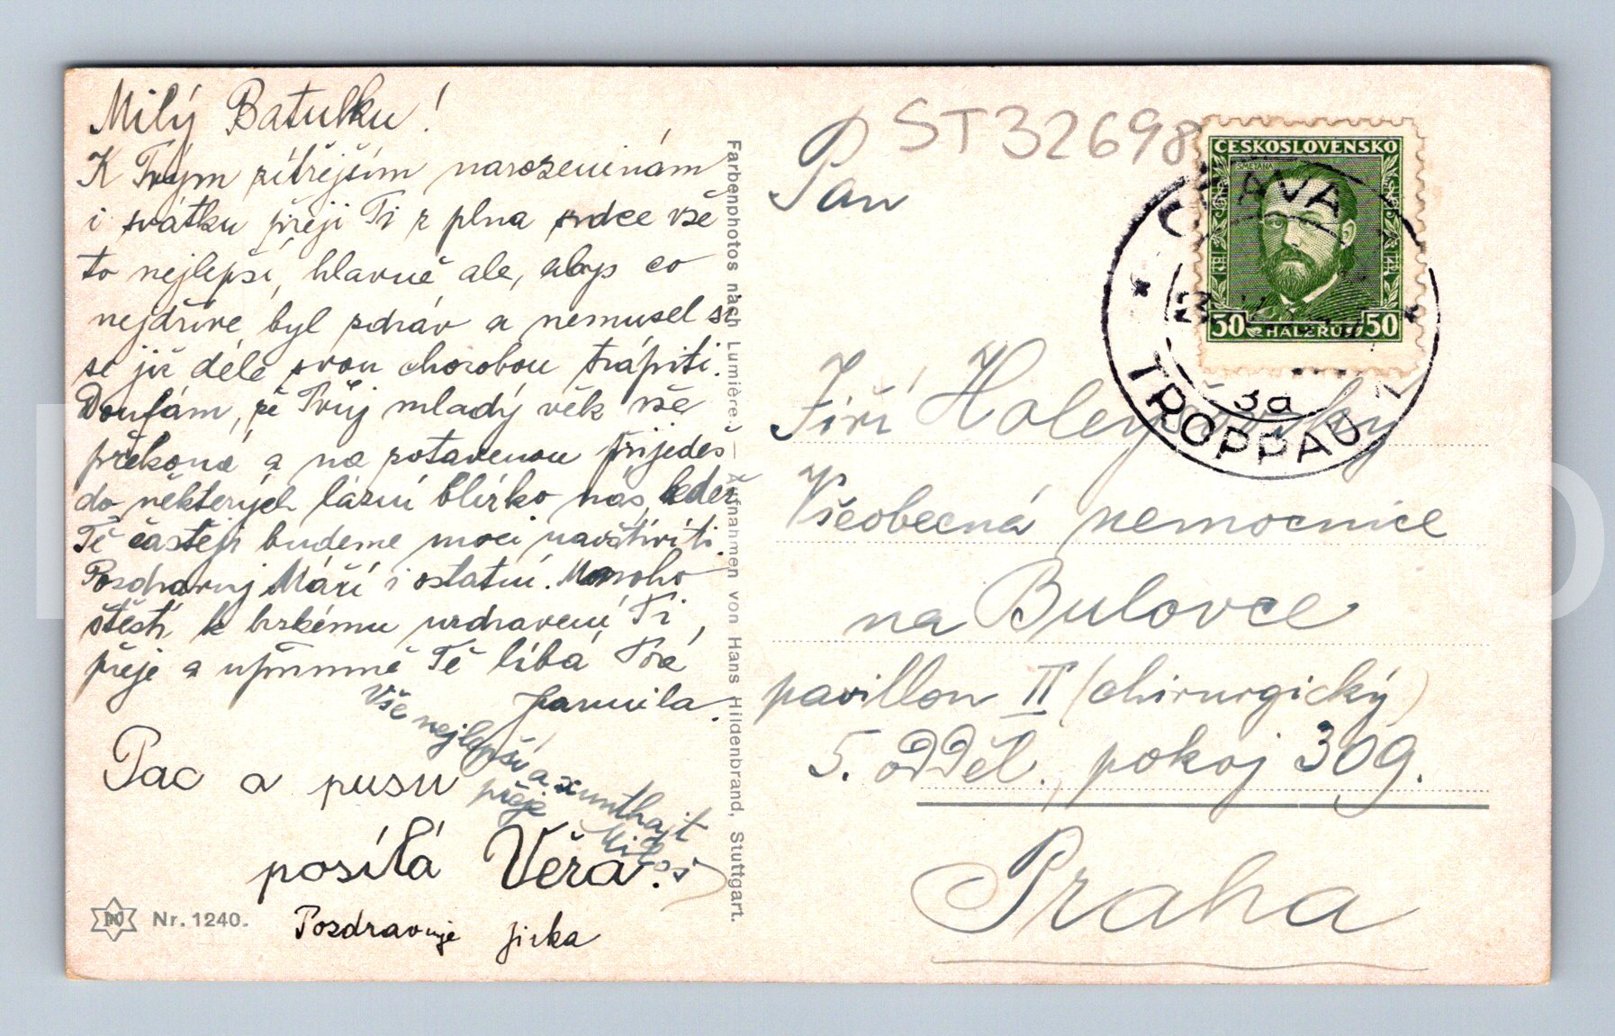 Milý Batulku!
K Tvým zítřejším narozeninám
i svátku přeji Ti z plna srdce vše
to nejlepší, hlavně ale, abys co
nejdříve byl zdráv a nemusel si
se již déle svou chorobou trápiti.
Doufám, že Tvůj mladý věk vše
překoná a na zotavenou přijedeš
do některých lázní blízko nás, kdež
Tě častěji budeme moci navštíviti.
Pozdravuj Máří i ostatní. Mnoho
štěstí k brzkému uzdravení Ti
přeje a upřímně Tě líbá Tvá
Jarmila.
Vše nejlepší a
přeje
Miloš
Pac a pusu
posílá Věra.
Pozdravuje Jirka
Nr. 1240.
Farbenphotos nach Lumière. – Aufnahmen von Hans Hildenbrand, Stuttgart.
ST32698
Pan
Jiří
Všeobecná nemocnice
na Bulovce
pavillon II (chirurgický)
5. odděl., pokoj 309.
Praha
ČESKOSLOVENSKO
50 HALÉŘŮ 50
OPAVA
3a
TROPPAU